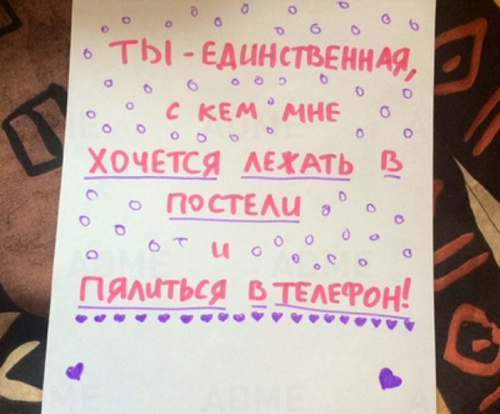 ТЫ - ЕДИНСТВЕННАЯ,
С КЕМ МНЕ
ХОЧЕТСЯ ЛЕЖАТЬ В
ПОСТЕЛИ
И
ПЯЛИТЬСЯ В ТЕЛЕФОН!
ADME
ADME
ADME